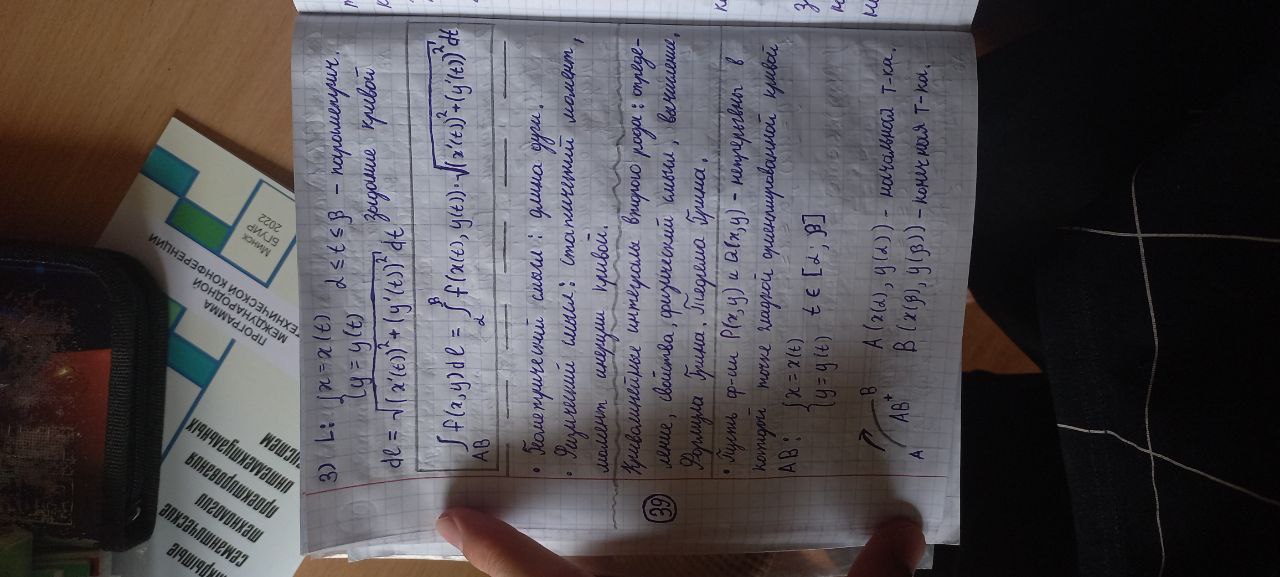 3) L: { x = x(t)
y = y(t)
α ≤ t ≤ β - параметрич.
задание кривой
dl = √((x'(t))² + (y'(t))²) dt
∫AB f(x,y)dl = ∫αβ f(x(t), y(t))·√((x'(t))² + (y'(t))²) dt
• Геометрический смысл: длина дуги.
• Физический смысл: статический момент,
момент инерции кривой.
39
Криволинейные интегралы второго рода: опреде-
ление, свойства, физический смысл, вычисление,
Формула Грина. Теорема Грина.
• Пусть ф-ции P(x,y) и Q(x,y) - непрерывны в
каждой точке гладкой ориентированной кривой
AB: { x = x(t)
y = y(t) t ∈ [α; β]
A B
AB⁺
A(x(α), y(α)) - начальная т-ка.
B(x(β), y(β)) - конечная т-ка.
ПРОГРАММА
МЕЖДУНАРОДНОЙ
ТЕХНИЧЕСКОЙ КОНФЕРЕНЦИИ
Минск
БГУИР
2022
семантические
технологии
проектирования
интеллектуальных
систем